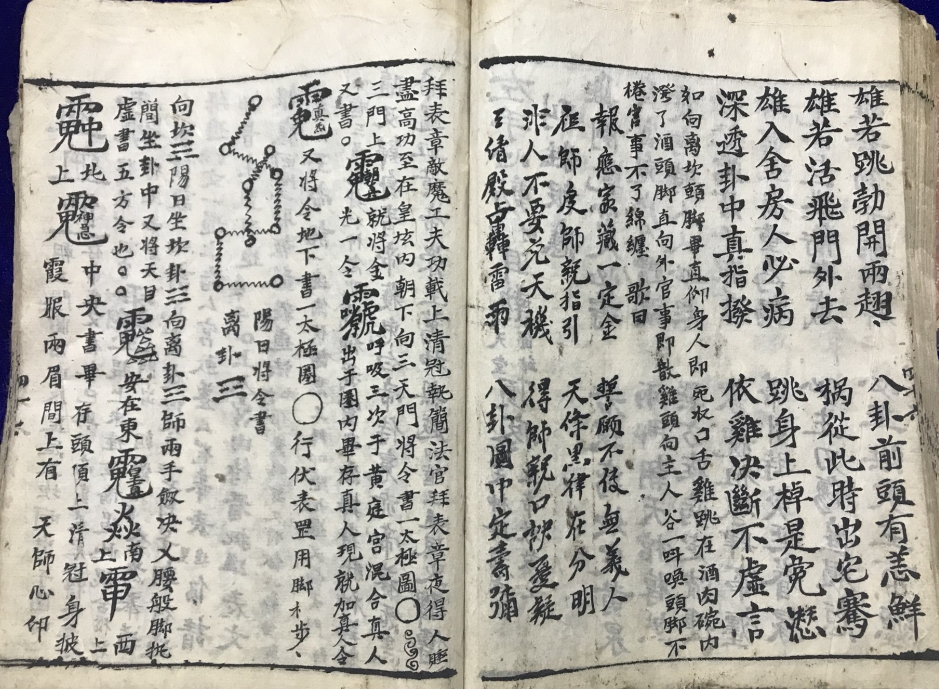 雄若跳勃開兩翅 八卦前頭有恙鮮
雄若活飛門外去 禍從此時出宅騫
雄入舍房人必病 跳身上棹是冤愆
深透卦中真指撥 依雞決斷不虛言
如向离坎頭脚畢直仰身人即死収口舌雞跳在酒肉碗内
了酒頭脚直向外官事即散雞頭向主人谷一呌喚頭脚不
捲官事不了綿纏 歌曰
報應家藏一定金 誓願不後無義人
祖師度師親指引 天條黒律在分明
非人不要元天機 得師親口訣憂疑
三清殿占轟雷雨 八卦圖中定壽彌
拜表章敵魔工夫功載上清冠執簡法官拜表章夜得人
盡高功至在皇坛内朝下向三天門將令書一太極圖
三門上 就將金 呼吸三次于黄庭宫混合真人
又書 光一令 出于圏内畢存真人現就加真令
又將令地下書一太極圏 行伏表罡用脚木步
陽日將令書
离卦三
向坎三陽日坐坎卦三向离卦三師兩手劔决乂腰般脚挑
簡坐卦中又將天目
虚書五方令也 安在東 南 上 西 上
北 上 中央書畢 存頭頂上清冠身披
霞服兩眉間上有 天師心印